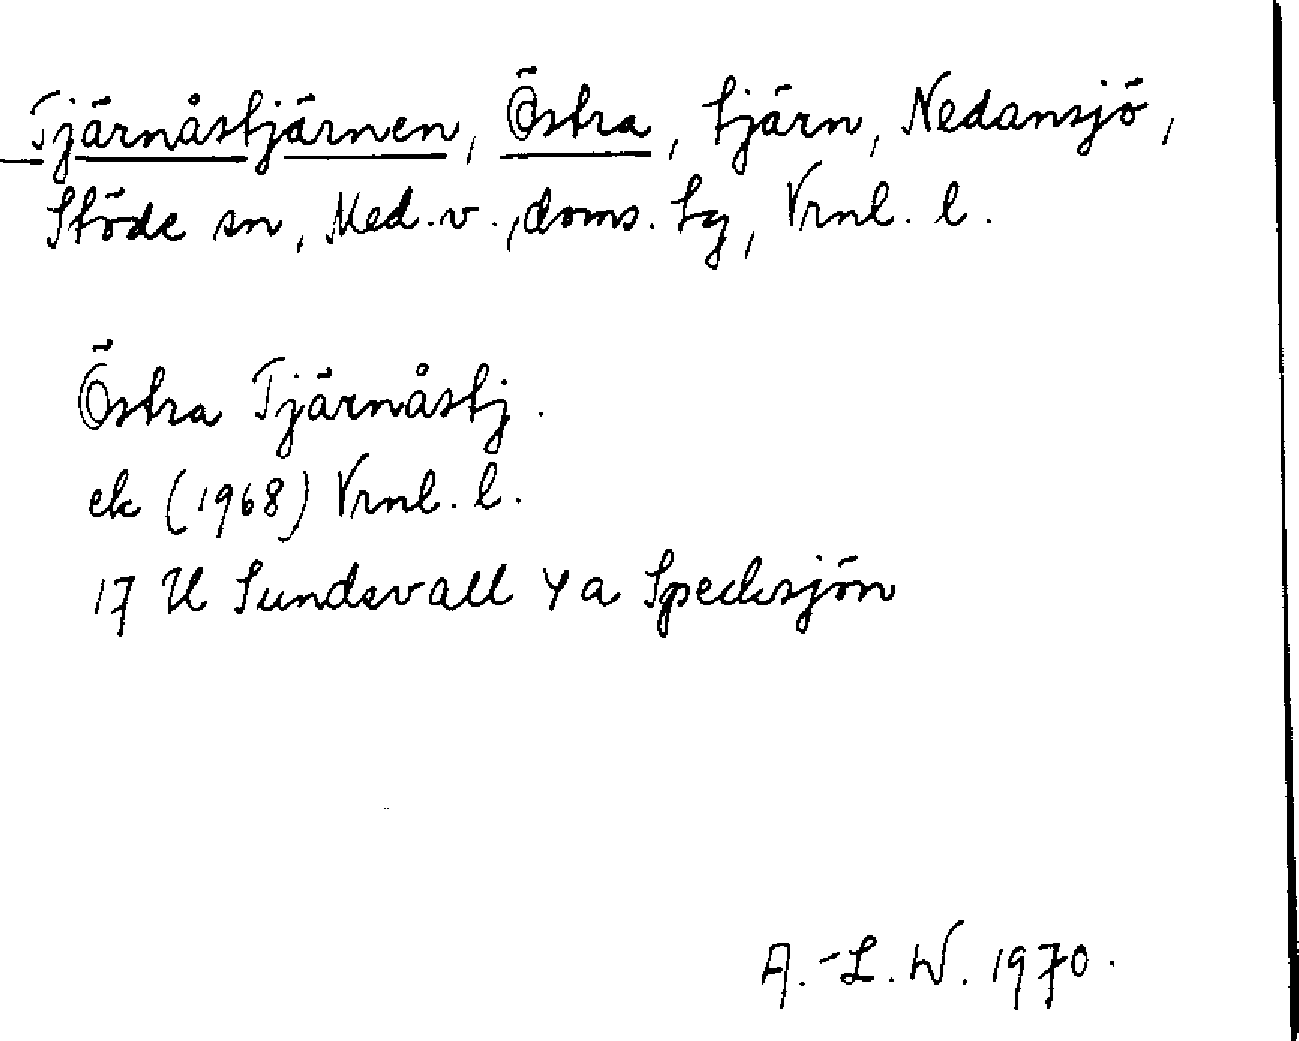 Tjärnåstjärnen, Östra, tjärn, Nedansjö,
Stöde sn, Med. v., doms. tg, Vrnl. l.
Östra Tjärnåstj.
ek (1968) Vrnl. l.
17 H Sundsvall 4 a Specksjön
A.-L. W. 1970.